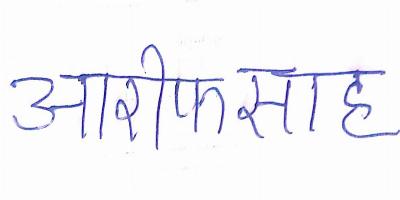 आरीफ साह